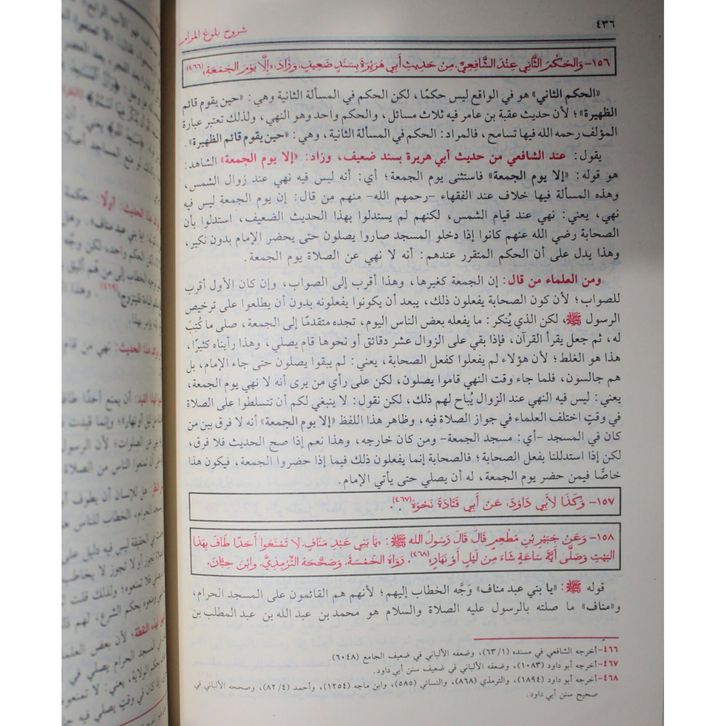 شروح بلوغ المرام
٤٣٦
١٥٦- وَالحُكْمُ الثَّانِي عِنْدَ الشَّافِعِيِّ مِنْ حَدِيثِ أَبِي هُرَيْرَةَ بِسَنَدٍ ضَعِيفٍ. وَزَادَ: «إِلَّا يَوْمَ الجُمُعَةِ»(٤٦٦).
«الحكم الثاني» هو في الواقع ليس حكمًا، لكن الحكم في المسألة الثانية وهي: «حين يقوم قائم
الظهيرة»؛ لأن حديث عقبة بن عامر فيه ثلاث مسائل، والحكم واحد وهو النهي، ولذلك تعتبر عبارة
المؤلف رحمه الله فيها تسامح، فالمراد: الحكم في المسألة الثانية، وهي: «حين يقوم قائم الظهيرة».
يقول: عند الشافعي من حديث أبي هريرة بسند ضعيف، وزاد: «إلا يوم الجمعة» الشاهد:
هو قوله: «إلا يوم الجمعة» فاستثنى يوم الجمعة؛ أي: أنه ليس فيه نهي عند زوال الشمس،
وهذه المسألة فيها خلاف عند الفقهاء -رحمهم الله- منهم من قال: إن يوم الجمعة ليس فيه
نهي، يعني: نهي عند قيام الشمس، لكنهم لم يستدلوا بهذا الحديث الضعيف، استدلوا بأن
الصحابة رضي الله عنهم كانوا إذا دخلوا المسجد صاروا يصلون حتى يحضر الإمام بدون نكير،
وهذا يدل على أن الحكم المتقرر عندهم: أنه لا نهي عن الصلاة يوم الجمعة.
ومن العلماء من قال: إن الجمعة كغيرها، وهذا أقرب إلى الصواب، وإن كان الأول أقرب
للصواب؛ لأن كون الصحابة يفعلون ذلك، يبعد أن يكونوا يفعلونه بدون أن يطلعوا على ترخيص
الرسول ﷺ، لكن الذي يُنكر: ما يفعله بعض الناس اليوم، تجده متقدمًا إلى الجمعة، صلى ما كُتِبَ
له، ثم جعل يقرأ القرآن، فإذا بقي على الزوال عشر دقائق أو نحوها قام يصلي، وهذا رأيناه كثيرًا،
هذا هو الغلط؛ لأن هؤلاء لم يفعلوا كفعل الصحابة، يعني: لم يبقوا يصلون حتى جاء الإمام، بل
هم جالسون، فلما جاء وقت النهي قاموا يصلون، لكن على رأي من يرى أنه لا نهي يوم الجمعة،
يعني: ليس فيه النهي عند الزوال يُباح لهم ذلك، لكن نقول: لا ينبغي لكم أن تتسلطوا على الصلاة
في وقتٍ اختلف العلماء في جواز الصلاة فيه، وظاهر هذا اللفظ «إلا يوم الجمعة» أنه لا فرق بين من
كان في المسجد -أي: مسجد الجمعة- ومن كان خارجه، وهذا نعم إذا صح الحديث فلا فرق،
لكن إذا استدللنا بفعل الصحابة؛ فالصحابة إنما يفعلون ذلك فيما إذا حضروا الجمعة، فيكون هذا
خاصًّا فيمن حضر يوم الجمعة، له أن يصلي حتى يأتي الإمام.
١٥٧- وَكَذَا لِأَبِي دَاوُدَ، عَنْ أَبِي قَتَادَةَ نَحْوَهُ(٤٦٧).
١٥٨- وَعَنْ جُبَيْرِ بْنِ مُطْعِمٍ قَالَ: قَالَ رَسُولُ الله ﷺ: «يَا بَنِي عَبْدِ مَنَافٍ، لَا تَمْنَعُوا أَحَدًا طَافَ بِهَذَا
البَيْتِ وَصَلَّى أَيَّةَ سَاعَةٍ شَاءَ مِنْ لَيْلٍ أَوْ نَهَارٍ»(٤٦٨). رَوَاهُ الخَمْسَةُ، وَصَحَّحَهُ التِّرْمِذِيُّ، وَابْنُ حِبَّانَ.
قوله ﷺ: «يا بني عبد مناف» وَجَّه الخطاب إليهم؛ لأنهم هم القائمون على المسجد الحرام،
و«مناف» ما صلته بالرسول عليه الصلاة والسلام هو محمد بن عبد الله بن عبد المطلب بن
٤٦٦- أخرجه الشافعي في مسنده (٦٣/١)، وضعفه الألباني في ضعيف الجامع (٦٠٤٨).
٤٦٧- أخرجه أبو داود (١٠٨٣)، وضعفه الألباني في ضعيف سنن أبي داود.
٤٦٨- أخرجه أبو داود (١٨٩٤)، والترمذي (٨٦٨)، والنسائي (٥٨٥)، وابن ماجه (١٢٥٤)، وأحمد (٨٢/٤)، وصححه الألباني في
صحيح سنن أبي داود.